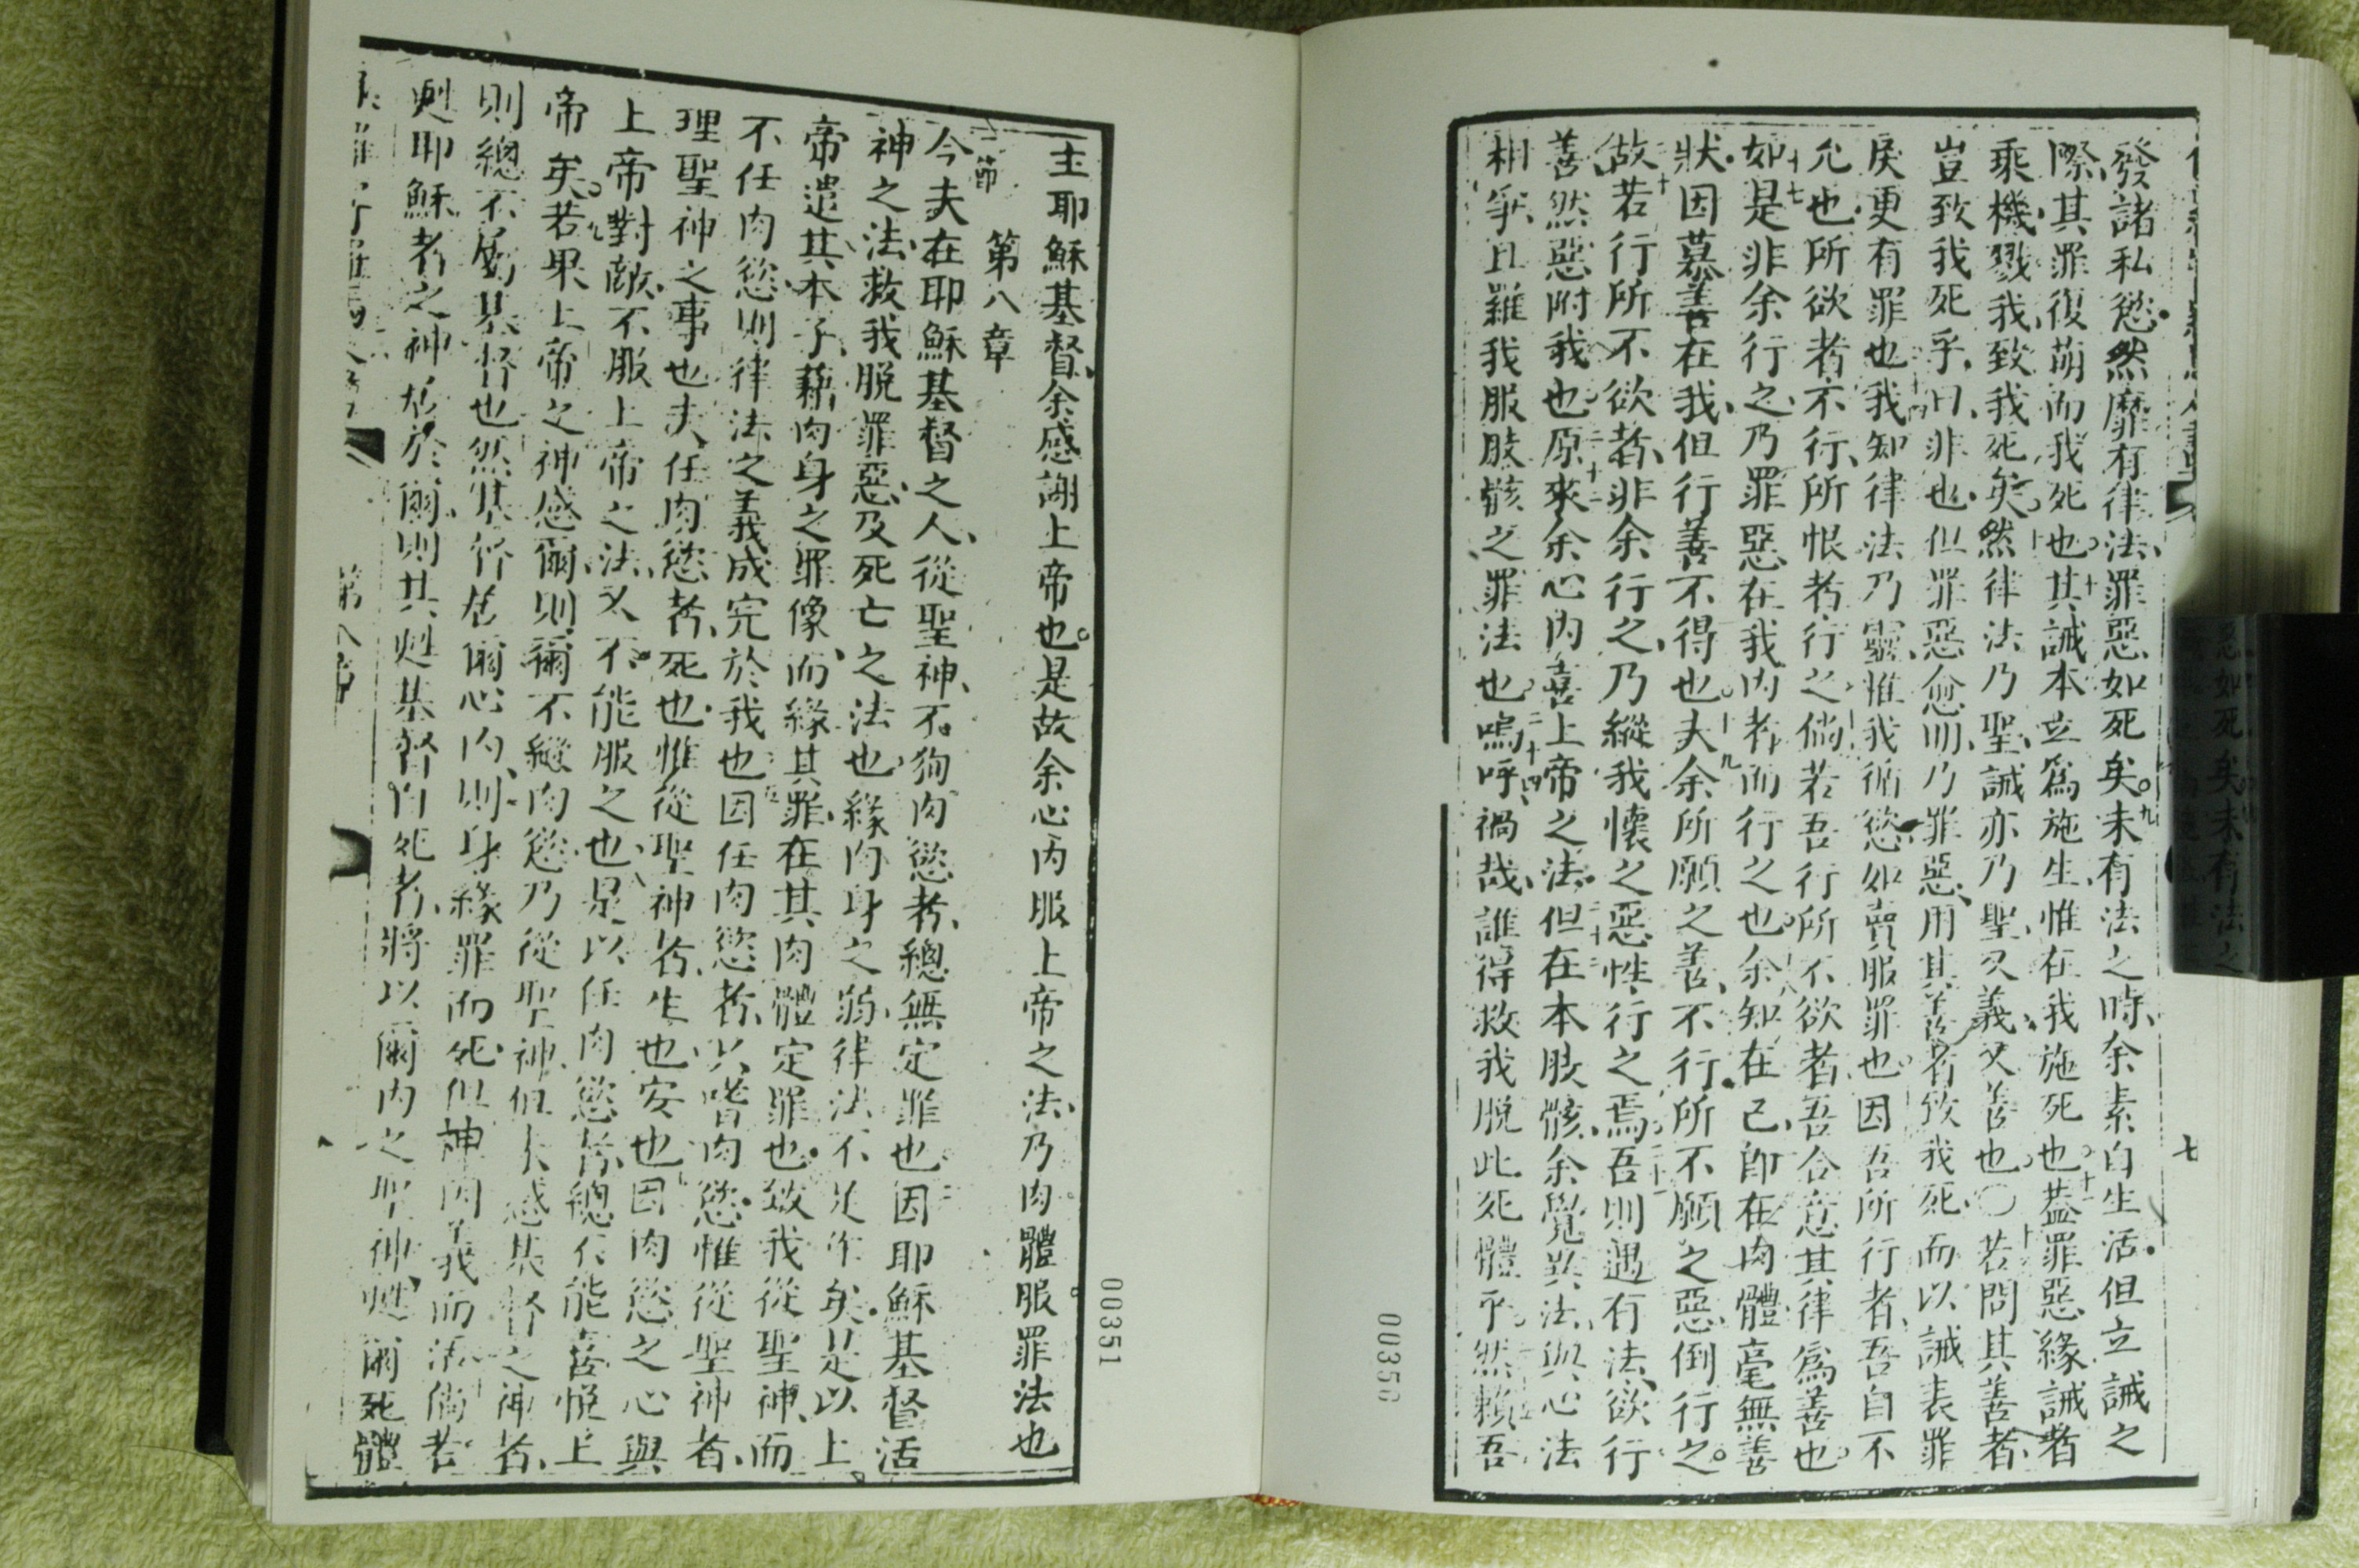 發諸私慾然靡有律法罪惡如死矣九未有法之時余素自生活但立誡之
際其罪復萌而我死也十其誡本立爲施生惟在我施死也十一蓋罪惡緣誡者
乘機戮我致我死矣然律法乃聖誡亦乃聖又義又善也〇若問其善者
豈致我死乎曰非也但罪惡愈明乃罪惡用其善者致我死而以誡表罪
戾更有罪也十四我知律法乃靈惟我循慾如賣服罪也因吾所行者吾自不
允也所欲者不行所恨者行之倘若吾行所不欲者吾合意其律爲善也
十七如是非余行之乃罪惡在我內者而行之也余知在己卽在肉體毫無善
狀因慕善在我但行善不得也十九夫余所願之善不行所不願之惡倒行之
故若行所不欲者非余行之乃縱我懷之惡性行之焉二十一吾則遇有法欲行
善然惡附我也二十二原來余心內喜上帝之法二十三但在本肢骸余覺異法與心法
相爭且羅我服肢骸之罪法也二十四嗚呼禍哉誰得救我脫此死體乎然賴吾
七
00350
主耶穌基督余感謝上帝也是故余心內服上帝之法乃肉體服罪法也
第八章
一節
今夫在耶穌基督之人從聖神不狥肉慾者總無定罪也因耶穌基督活
神之法救我脫罪惡及死亡之法也緣肉身之弱律法不足作矣是以上
帝遣其本子藉肉身之罪像而緣其罪在其肉體定罪也致我從聖神而
不任肉慾則律法之義成完於我也五因任肉慾者只嗜肉慾惟從聖神者
理聖神之事也夫任肉慾者死也惟從聖神者生也安也因肉慾之心與
上帝對敵不服上帝之法又不能服之也是以任肉慾者總不能喜悅上
帝矣九若果上帝之神感爾則爾不縱肉慾乃從聖神但未感基督之神者
則總不屬基督也然基督居爾心內則身緣罪而死但神因義而活倘若
甦耶穌者之神居於爾則其甦基督自死者將以爾內之聖神甦爾死體
第八章
00351